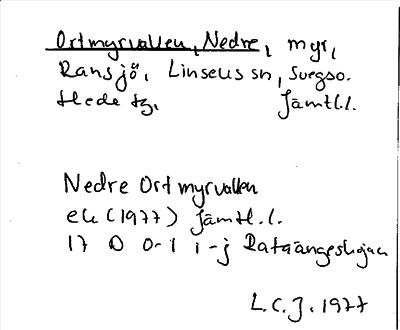 Ortmyrvallen, Nedre, myr,
Ransjö, Linsells sn, Svegs o.
Hede tg. Jämtl.l.
Nedre Ortmyrvallen
ek (1977) Jämtl.l.
17 D 0-1 i-j
L.C.J. 1977